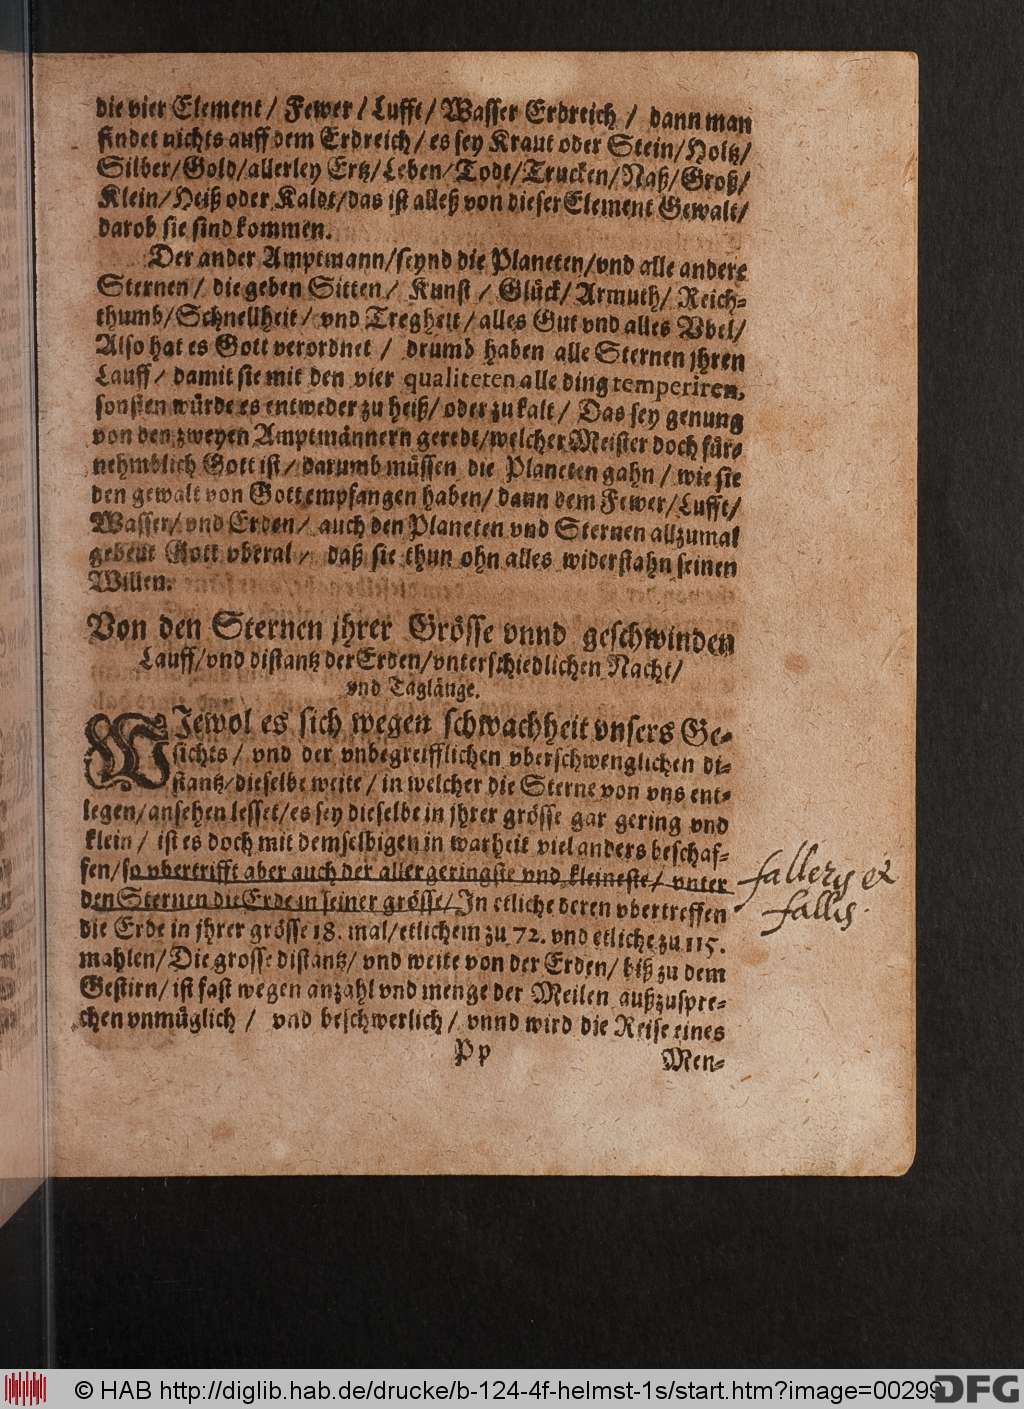 die vier Element / Fewer / Lufft / Wasser Erdreich / dann man
findet nichts auff dem Erdreich / es sey Kraut oder Stein / Holtz /
Silber / Gold / allerley Ertz / Leben / Todt / Trucken / Naß / Groß /
Klein / Heiß oder Kaldt / das ist alleß von dieser Element Gewalt /
darob sie sind kommen.
Der ander Amptmann / seynd die Planeten / vnd alle andere
Sternen / die geben Sitten / Kunst / Glück / Armuth / Reich-
thumb / Schnellheit / vnd Tregheit / alles Gut vnd alles Vbel /
Also hat es Gott verordnet / drumb haben alle Sternen jhren
Lauff / damit sie mit den vier qualiteten alle ding temperiren,
sonsten würde es entweder zu heiß / oder zu kalt / Das sey genung
von den zweyen Amptmännern geredt / welcher Meister doch für-
nehmblich Gott ist / darumb müssen die Planeten gahn / wie sie
den gewalt von Gott empfangen haben / dann dem Fewer / Lufft /
Wasser / vnd Erden / auch den Planeten vnd Sternen allzumal
gebeut Gott vberal / daß sie thun ohn alles widerstahn seinen
Willen.
Von den Sternen jhrer Grösse vnnd geschwinden
Lauff / vnd distantz der Erden / vnterschiedlichen Nacht /
vnd Taglänge.
WIewol es sich wegen schwachheit vnsers Ge-
sichts / vnd der vnbegreifflichen vberschwenglichen di-
stantz / dieselbe weite / in welcher die Sterne von vns ent-
legen / ansehen lesset / es sey dieselbe in jhrer grösse gar gering vnd
klein / ist es doch mit demselbigen in warheit viel anders beschaf-
fen / so vbertrifft aber auch der allergeringste vnd kleineste / vnter
den Sternen die Erde in seiner grösse / In etliche deren vbertreffen
die Erde in jhrer grösse 18. mal / etlichem zu 72. vnd etliche zu 115.
mahlen / Die grosse distantz / vnd weite von der Erden / biß zu dem
Gestirn / ist fast wegen anzahl vnd menge der Meilen außzuspre-
chen vnmüglich / vnd beschwerlich / vnnd wird die Reise eines
Pp Men-
falleris et
fallis.
© HAB http://diglib.hab.de/drucke/b-124-4f-helmst-1s/start.htm?image=00299
DFG